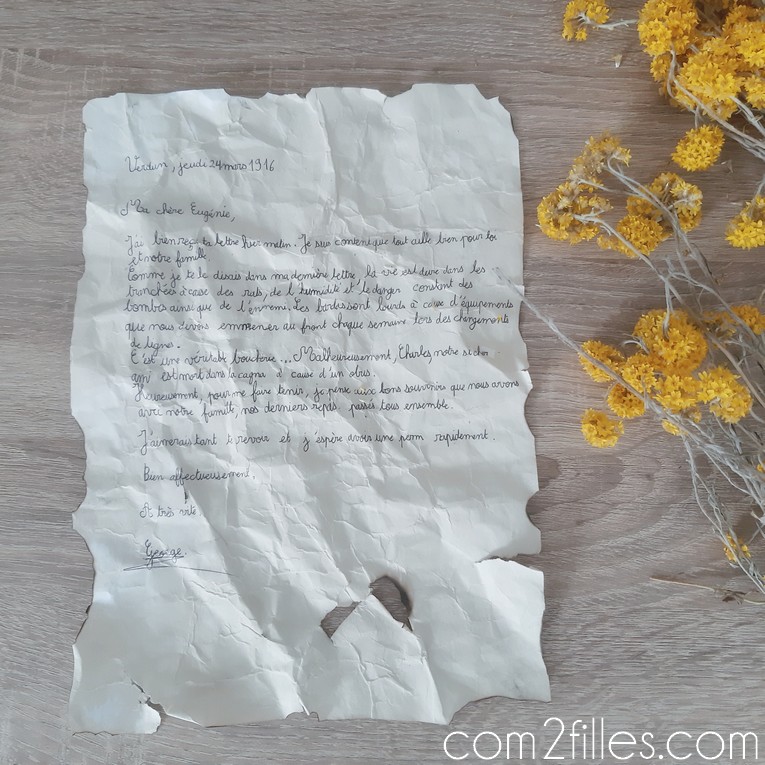 Verdun, jeudi 24 mars 1916
Ma chère Eugénie,
J'ai bien reçu ta lettre hier matin. Je suis content que tout aille bien pour toi
et notre famille
Comme je te le disais dans ma dernière lettre, la vie est dure dans les
tranchées à cause des rats, de l'humidité et le danger constant des
bombes ainsi que de l'ennemi. Les bardas sont lourds à cause d'équipements
que nous devons emmener au front chaque semaine lors des changements
de ligne.
C'est une véritable boucherie... Malheureusement, Charles, notre si cher
ami est mort dans la cagna à cause d'un obus.
Heureusement, pour me faire tenir, je pense aux bons souvenirs que nous avons
avec notre famille, nos derniers repas passés tous ensemble.
J'aimerais tant te revoir et j'éspère avoir une perm rapidement.
Bien affectueusement.
A très vite
George.
com2filles.com